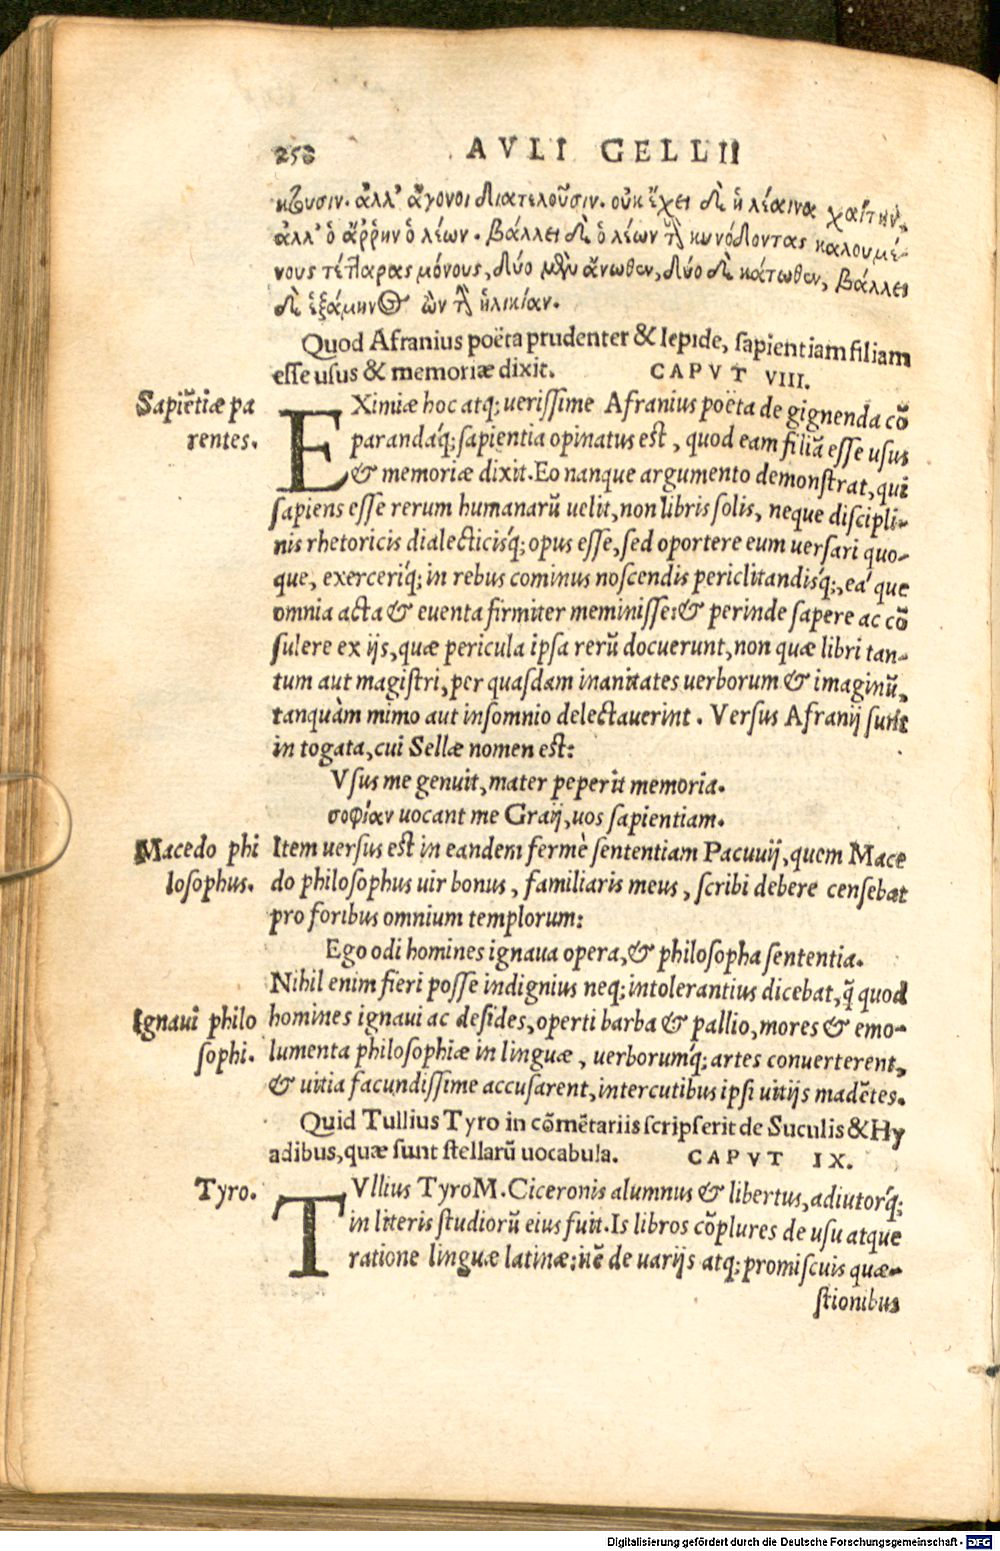 258 AVLI GELLII
κουσιν. ἀλλ' ἄγονοι διατελοῦσιν. οὐκ ἔχει δὲ ἡ λέαινα χαίτην,
ἀλλ' ὁ ἄῤῥην ὁ λέων. βάλλει δὲ ὁ λέων τῶν κυνόδοντας καλουμέ-
νους τέτταρας μόνους, δύο μὲν ἄνωθεν, δύο δὲ κάτωθεν, βάλλει
δὲ ἑξάμηνος ὢν τὴν ἡλικίαν.
Quod Afranius poëta prudenter & lepide, sapientiam filiam
esse usus & memoriæ dixit. CAPVT VIII.
Sapiẽtiæ pa
rentes.
EXimiæ hoc atq; uerissime Afranius poëta de gignenda cõ
parandáq; sapientia opinatus est, quod eam filiã esse usus
& memoriæ dixit. Eo nanque argumento demonstrat, qui
sapiens esse rerum humanarũ uelit, non libris solis, neque discipli-
nis rhetoricis dialecticisq́; opus esse, sed oportere eum uersari quo-
que, exerceriq́; in rebus cominus noscendis periclitandisq́;, eáque
omnia acta & euenta firmiter meminisse: & perinde sapere ac cõ
sulere ex ijs, quæ pericula ipsa rerũ docuerunt, non quæ libri tan-
tum aut magistri, per quasdam inanitates uerborum & imaginũ,
tanquàm mimo aut insomnio delectauerint. Versus Afranij sunt
in togata, cui Sellæ nomen est:
Vsus me genuit, mater peperit memoria.
σοφίαν uocant me Graij, uos sapientiam.
Macedo phi
losophus.
Item uersus est in eandem fermè sententiam Pacuuij, quem Mace
do philosophus uir bonus, familiaris meus, scribi debere censebat
pro foribus omnium templorum:
Ego odi homines ignaua opera, & philosopha sententia.
Nihil enim fieri posse indignius neq; intolerantius dicebat, q̃ quod
Ignaui philo
sophi.
homines ignaui ac desides, operti barba & pallio, mores & emo-
lumenta philosophiæ in linguæ, uerborumq́; artes conuerterent,
& uitia facundissime accusarent, intercutibus ipsi uitijs madẽtes.
Quid Tullius Tyro in cõmẽtariis scripserit de Suculis & Hy
adibus, quæ sunt stellarũ uocabula. CAPVT IX.
Tyro.
TVllius Tyro M. Ciceronis alumnus & libertus, adiutorq́;
in literis studiorũ eius fuit. Is libros cõplures de usu atque
ratione linguæ latinæ: itẽ de uarijs atq; promiscuis quæ-
stionibus
Digitalisierung gefördert durch die Deutsche Forschungsgemeinschaft - DFG